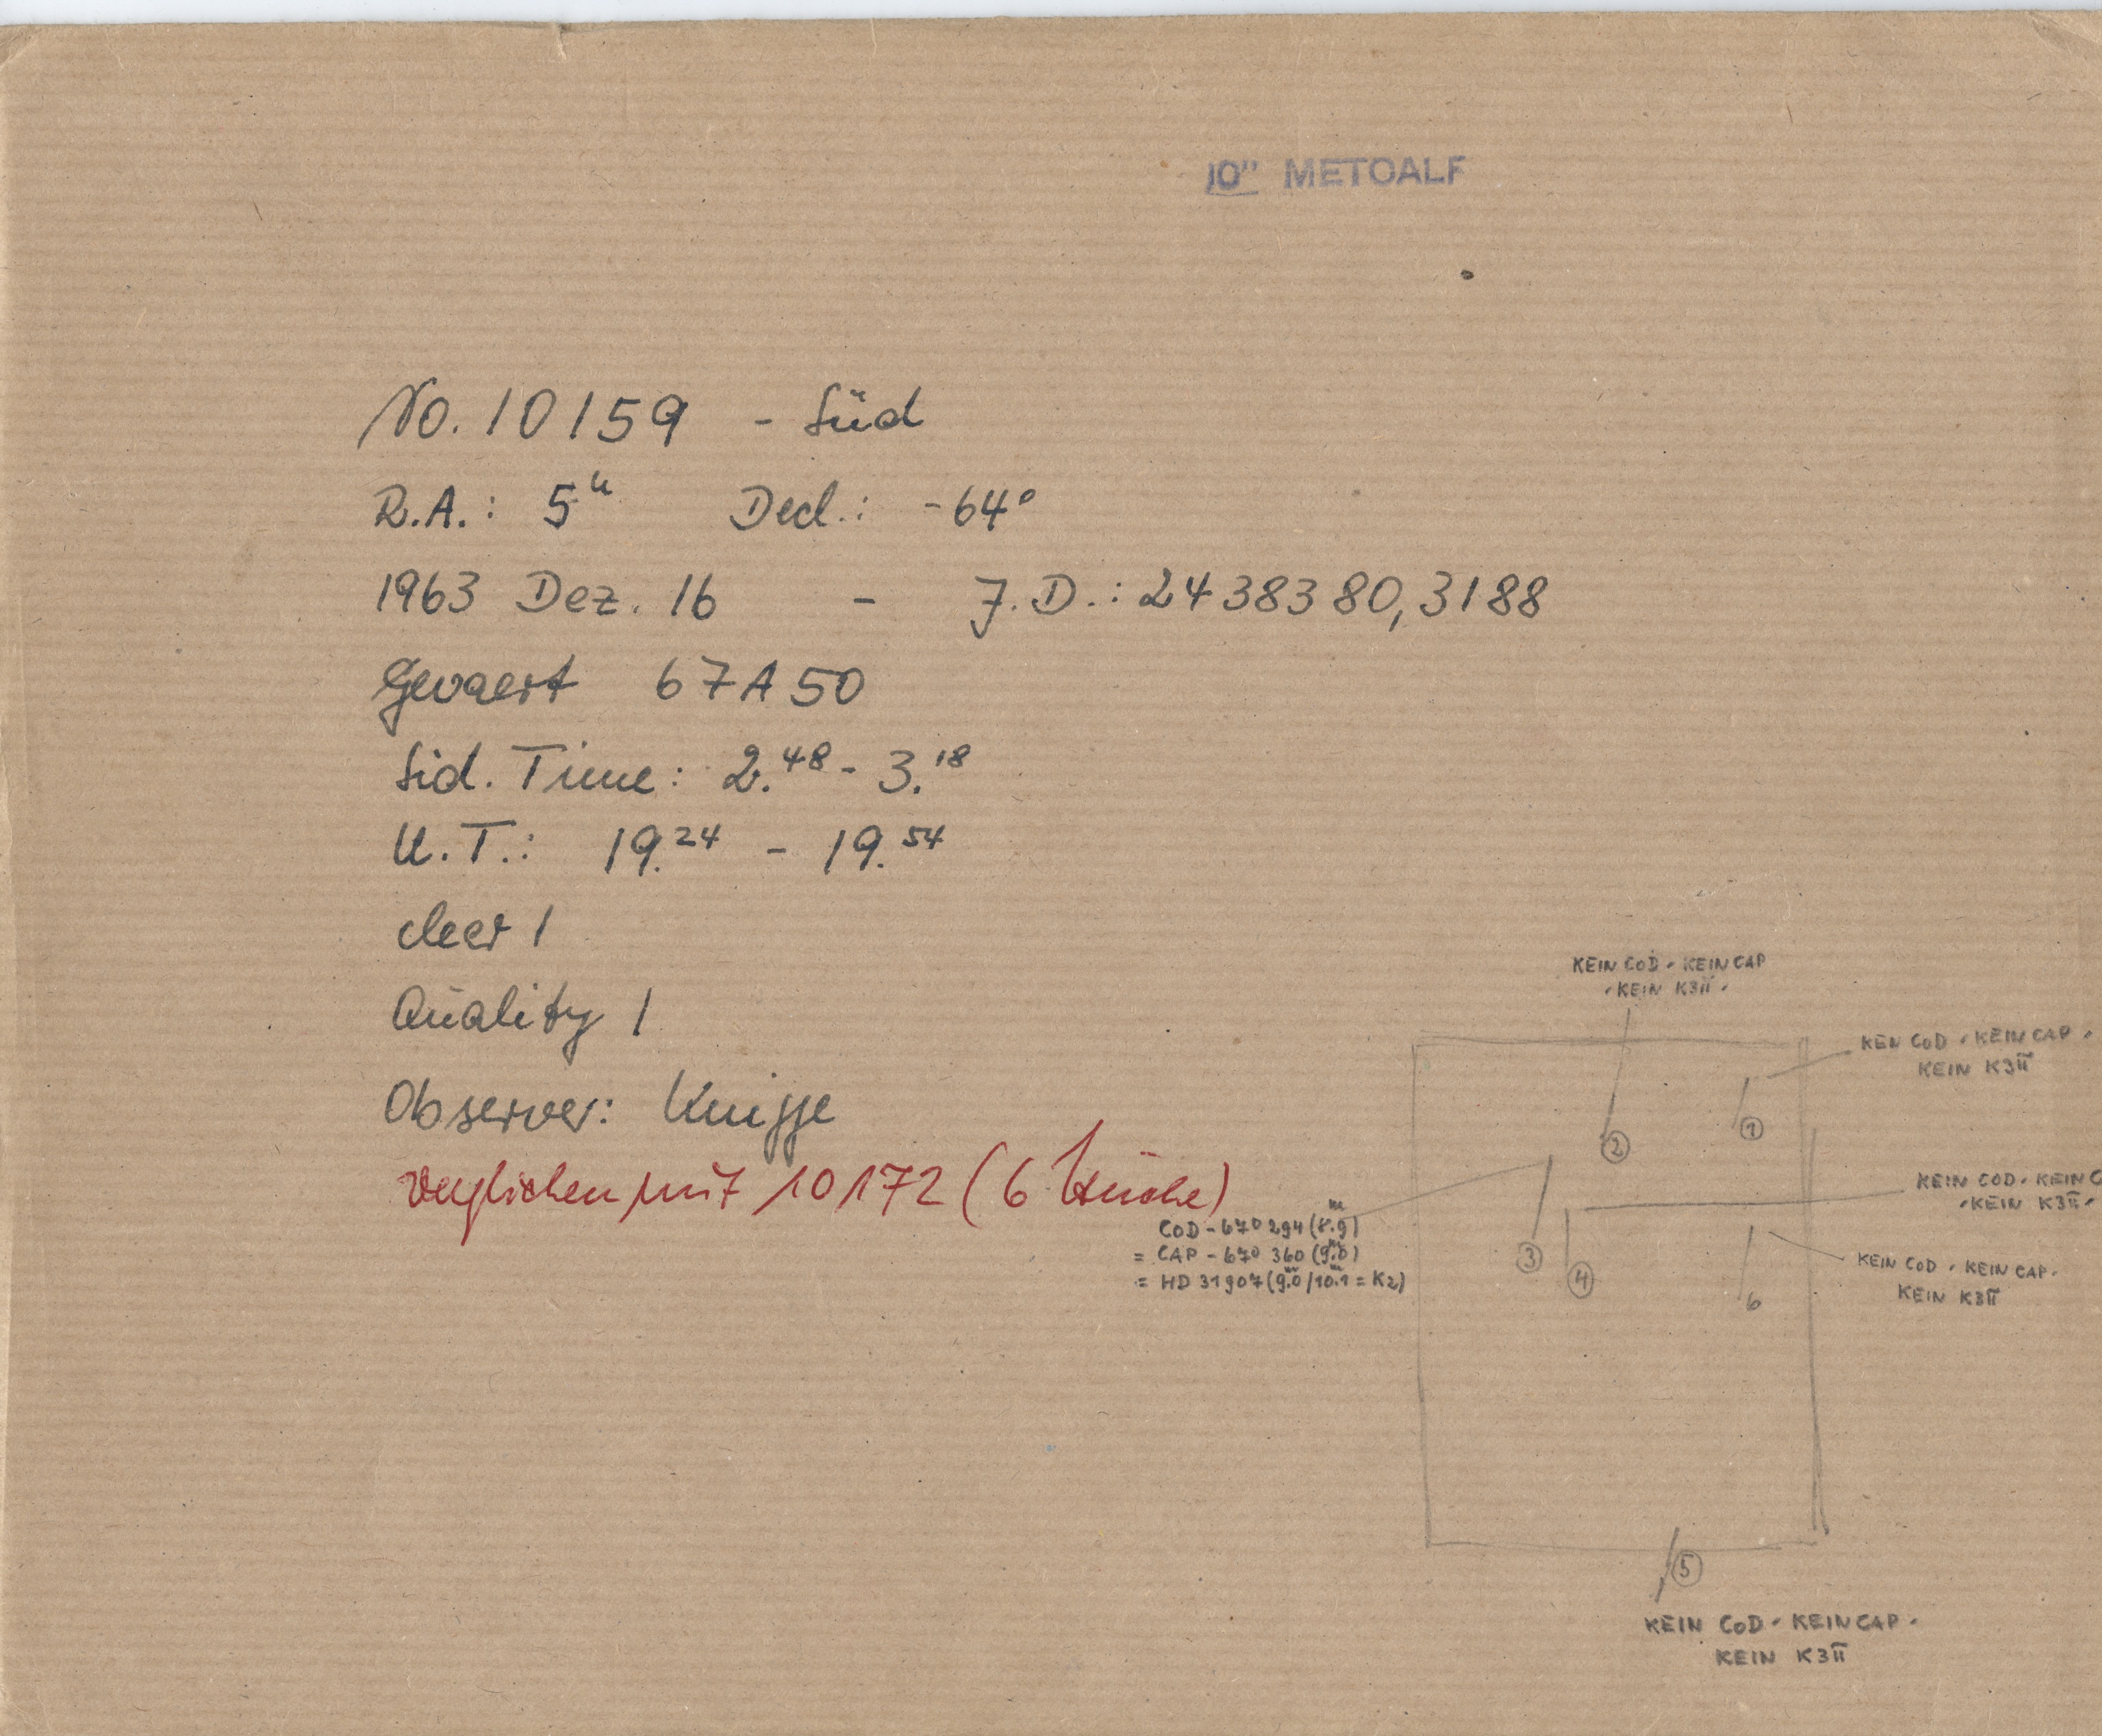 10" METCALF
No. 10159 - Süd
R.A.: 5h Decl.: -64°
1963 Dez. 16 - J.D.: 2438380,3188
Gevaert 67A50
Sid. Time: 2.48 - 3.18
U.T.: 19.24 - 19.54
clear 1
Quality 1
Observer: Knigge
verglichen mit 10172 (6 Striche)
KEIN CoD - KEIN CAP
- KEIN K3II -
KEN CoD - KEIN CAP -
KEIN K3II
1
2
KEIN COD - KEIN C
- KEIN K3II -
COD - 67° 294 (8.9)
= CAP - 67° 360 (9.0)
= HD 31907 (9.0 / 10.1 = K2)
3
4
KEIN COD - KEIN CAP -
KEIN K3II
6
5
KEIN CoD - KEIN CAP -
KEIN K3II